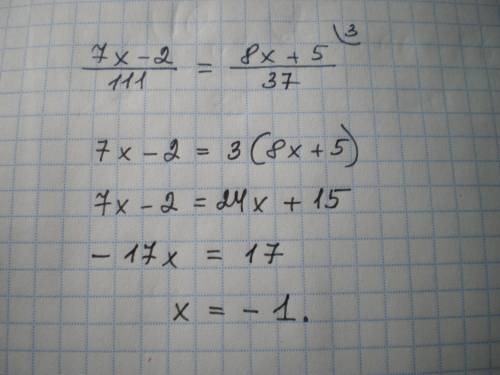 (7x - 2)/111 = (8x + 5)/37 ⟍3
7x - 2 = 3(8x + 5)
7x - 2 = 24x + 15
- 17x = 17
x = - 1.